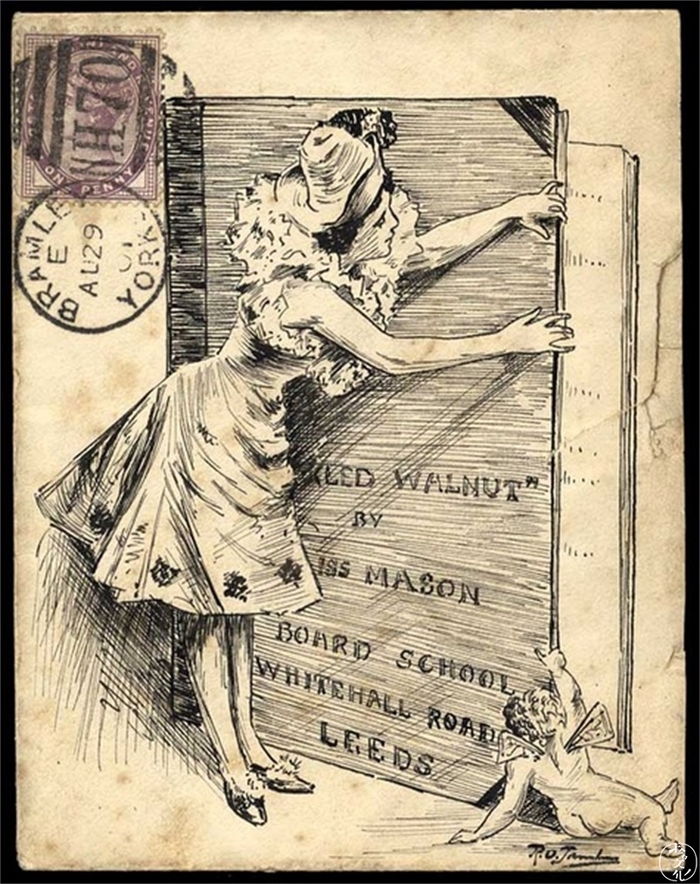 ONE PENNY
NH70
BRAMLEY
E
AU29
01
YORK
KLED WALNUT"
BY
ISS MASON
BOARD SCHOOL
WHITEHALL ROAD
LEEDS